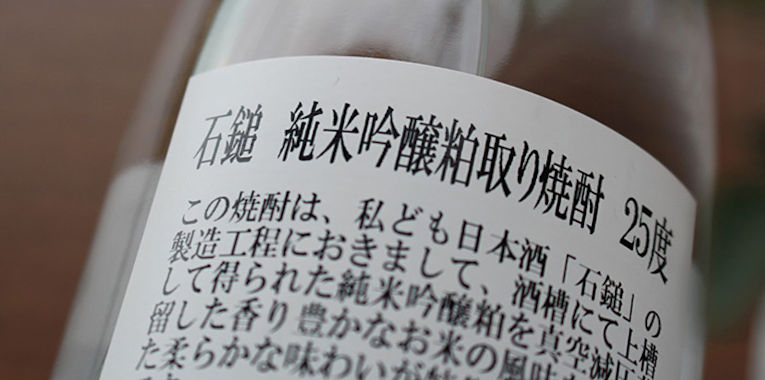 石鎚 純米吟醸粕取り焼酎 25度
この焼酎は、私ども日本酒「石鎚」の
製造工程におきまして、酒槽にて上槽
して得られた純米吟醸粕を真空減圧
留した香り豊かなお米の風味
た柔らかな味わいが